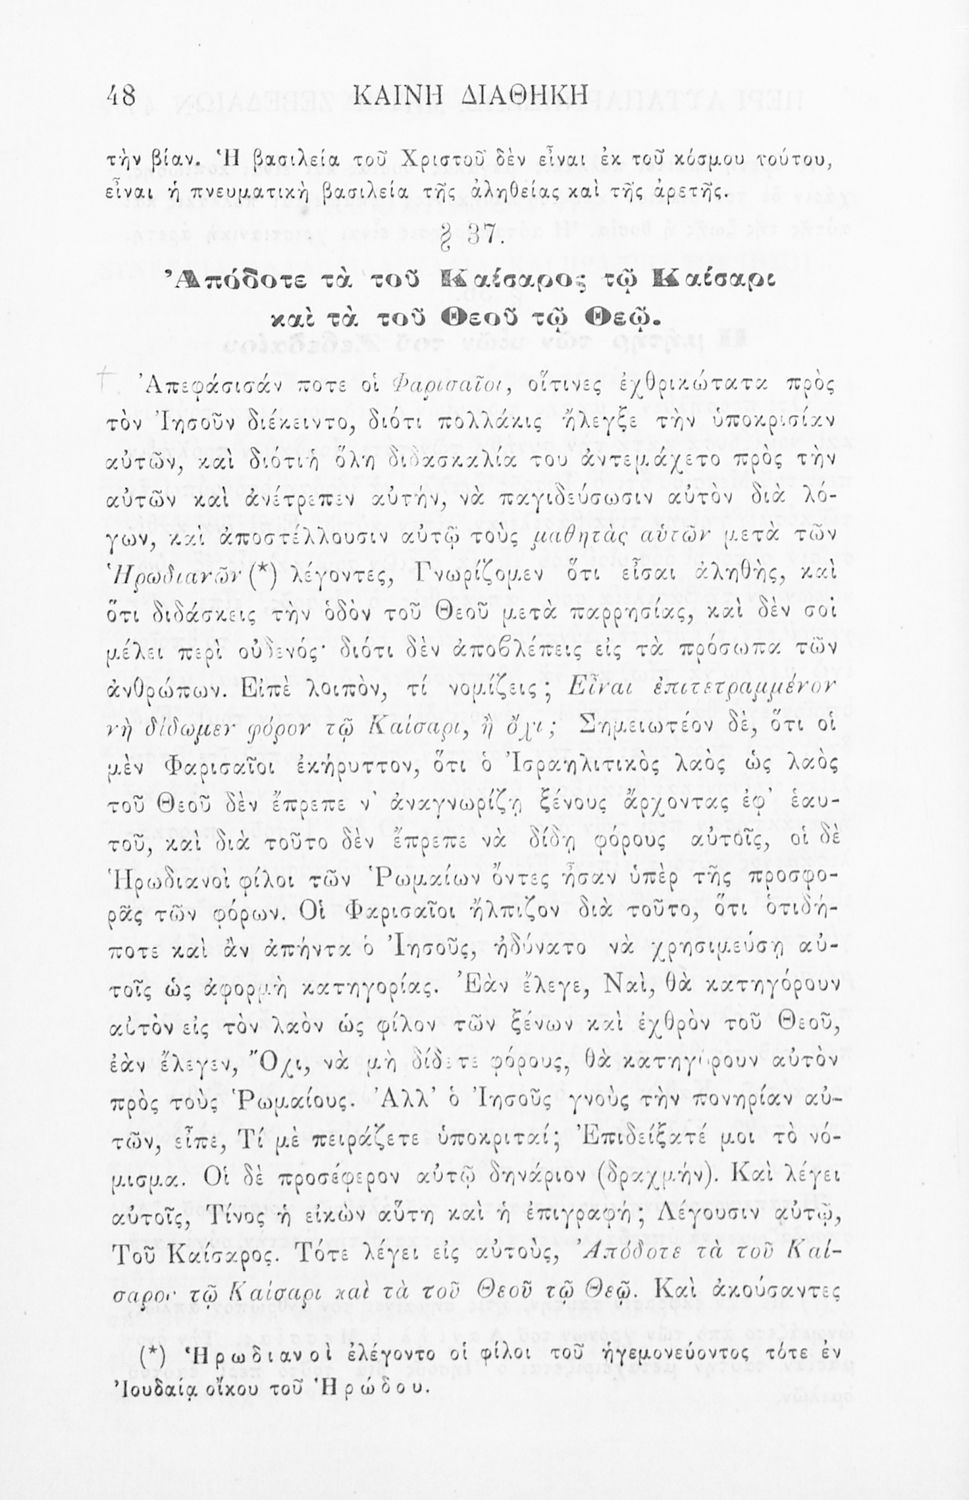 48 ΚΑΙΝΗ ΔΙΑΘΗΚΗ
τὴν βίαν. Ἡ βασιλεία τοῦ Χριστοῦ δὲν εἶναι ἐκ τοῦ κόσμου τούτου,
εἶναι ἡ πνευματικὴ βασιλεία τῆς ἀληθείας καὶ τῆς ἀρετῆς.
§ 37.
Ἀπόδοτε τὰ τοῦ Καίσαρος τῷ Καίσαρι
καὶ τὰ τοῦ Θεοῦ τῷ Θεῷ.
Ἀπεφάσισάν ποτε οἱ Φαρισαῖοι, οἵτινες ἐχθρικώτατα πρὸς
τὸν Ἰησοῦν διέκειντο, διότι πολλάκις ἤλεγξε τὴν ὑποκρισίαν
αὐτῶν, καὶ διότι ἡ ὅλη διδασκαλία του ἀντεμάχετο πρὸς τὴν
αὐτῶν καὶ ἀνέτρεπεν αὐτήν, νὰ παγιδεύσωσιν αὐτὸν διὰ λό-
γων, καὶ ἀποστέλλουσιν αὐτῷ τοὺς μαθητὰς αὑτῶν μετὰ τῶν
Ἡρωδιανῶν (*) λέγοντες, Γνωρίζομεν ὅτι εἶσαι ἀληθὴς, καὶ
ὅτι διδάσκεις τὴν ὁδὸν τοῦ Θεοῦ μετὰ παρρησίας, καὶ δὲν σοὶ
μέλει περὶ οὐδενός· διότι δὲν ἀποβλέπεις εἰς τὰ πρόσωπα τῶν
ἀνθρώπων. Εἰπὲ λοιπὸν, τί νομίζεις; Εἶναι ἐπιτετραμμένον
νὴ δίδωμεν φόρον τῷ Καίσαρι, ἢ ὄχι; Σημειωτέον δὲ, ὅτι οἱ
μὲν Φαρισαῖοι ἐκήρυττον, ὅτι ὁ Ἰσραηλιτικὸς λαὸς ὡς λαὸς
τοῦ Θεοῦ δὲν ἔπρεπε ν' ἀναγνωρίζῃ ξένους ἄρχοντας ἐφ' ἑαυ-
τοῦ, καὶ διὰ τοῦτο δὲν ἔπρεπε νὰ δίδῃ φόρους αὐτοῖς, οἱ δὲ
Ἡρωδιανοὶ φίλοι τῶν Ῥωμαίων ὄντες ἦσαν ὑπὲρ τῆς προσφο-
ρᾶς τῶν φόρων. Οἱ Φαρισαῖοι ἤλπιζον διὰ τοῦτο, ὅτι ὁτιδή-
ποτε καὶ ἂν ἀπήντα ὁ Ἰησοῦς, ἠδύνατο νὰ χρησιμεύσῃ αὐ-
τοῖς ὡς ἀφορμὴ κατηγορίας. Ἐὰν ἔλεγε, Ναὶ, θὰ κατηγόρουν
αὐτὸν εἰς τὸν λαὸν ὡς φίλον τῶν ξένων καὶ ἐχθρὸν τοῦ Θεοῦ,
ἐὰν ἔλεγεν, Ὄχι, νὰ μὴ δίδετε φόρους, θὰ κατηγόρουν αὐτὸν
πρὸς τοὺς Ῥωμαίους. Ἀλλ' ὁ Ἰησοῦς γνοὺς τὴν πονηρίαν αὐ-
τῶν, εἶπε, Τί μὲ πειράζετε ὑποκριταί; Ἐπιδείξατέ μοι τὸ νό-
μισμα. Οἱ δὲ προσέφερον αὐτῷ δηνάριον (δραχμήν). Καὶ λέγει
αὐτοῖς, Τίνος ἡ εἰκὼν αὕτη καὶ ἡ ἐπιγραφή; Λέγουσιν αὐτῷ,
Τοῦ Καίσαρος. Τότε λέγει εἰς αὐτοὺς, Ἀπόδοτε τὰ τοῦ Καί-
σαρος τῷ Καίσαρι καὶ τὰ τοῦ Θεοῦ τῷ Θεῷ. Καὶ ἀκούσαντες
(*) Ἡρωδιανοὶ ἐλέγοντο οἱ φίλοι τοῦ ἡγεμονεύοντος τότε ἐν
Ἰουδαίᾳ οἴκου τοῦ Ἡρώδου.